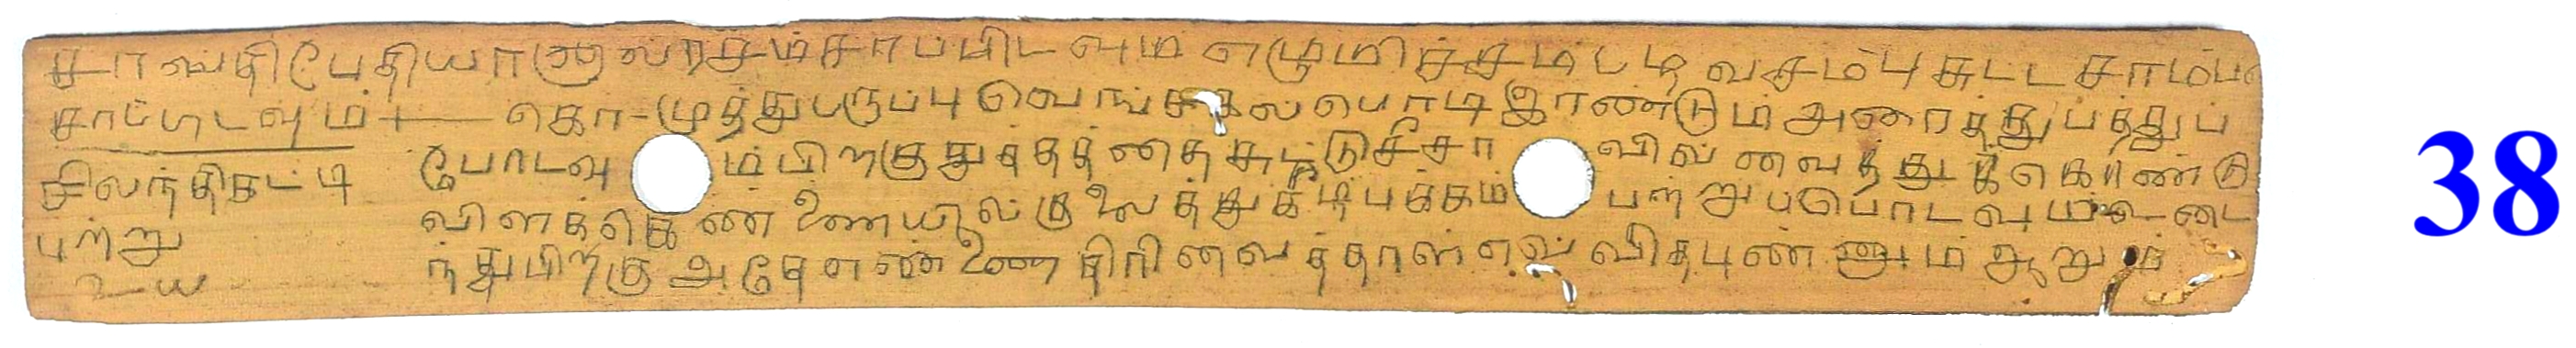 சாவ்திபேதியானால் ரசம்சாப்பிடவும் எழுமிச்சம்பட்டி வசம்பு சுட்ட சாம்பல்
சாப்பிடவும் கொ-முத்துபருப்பு வெங்கலபொடி இரண்டும் அரைத்துபத்துப்
சிலந்திகட்டி போடவும் பிறகுதுத்தத்தைசுட்டுசீசாவில் வைத்துக்கொண்டு
புற்று விளக்கெண்ணையில்குலைத்துக்கட்டிபுக்கம் பற்றுப்பொடவும் உடை
உய ந்துபிறகு அதேஎண்ணை திரிவைத்தால் எவ்விதபுண்ணும் ஆறும்
38